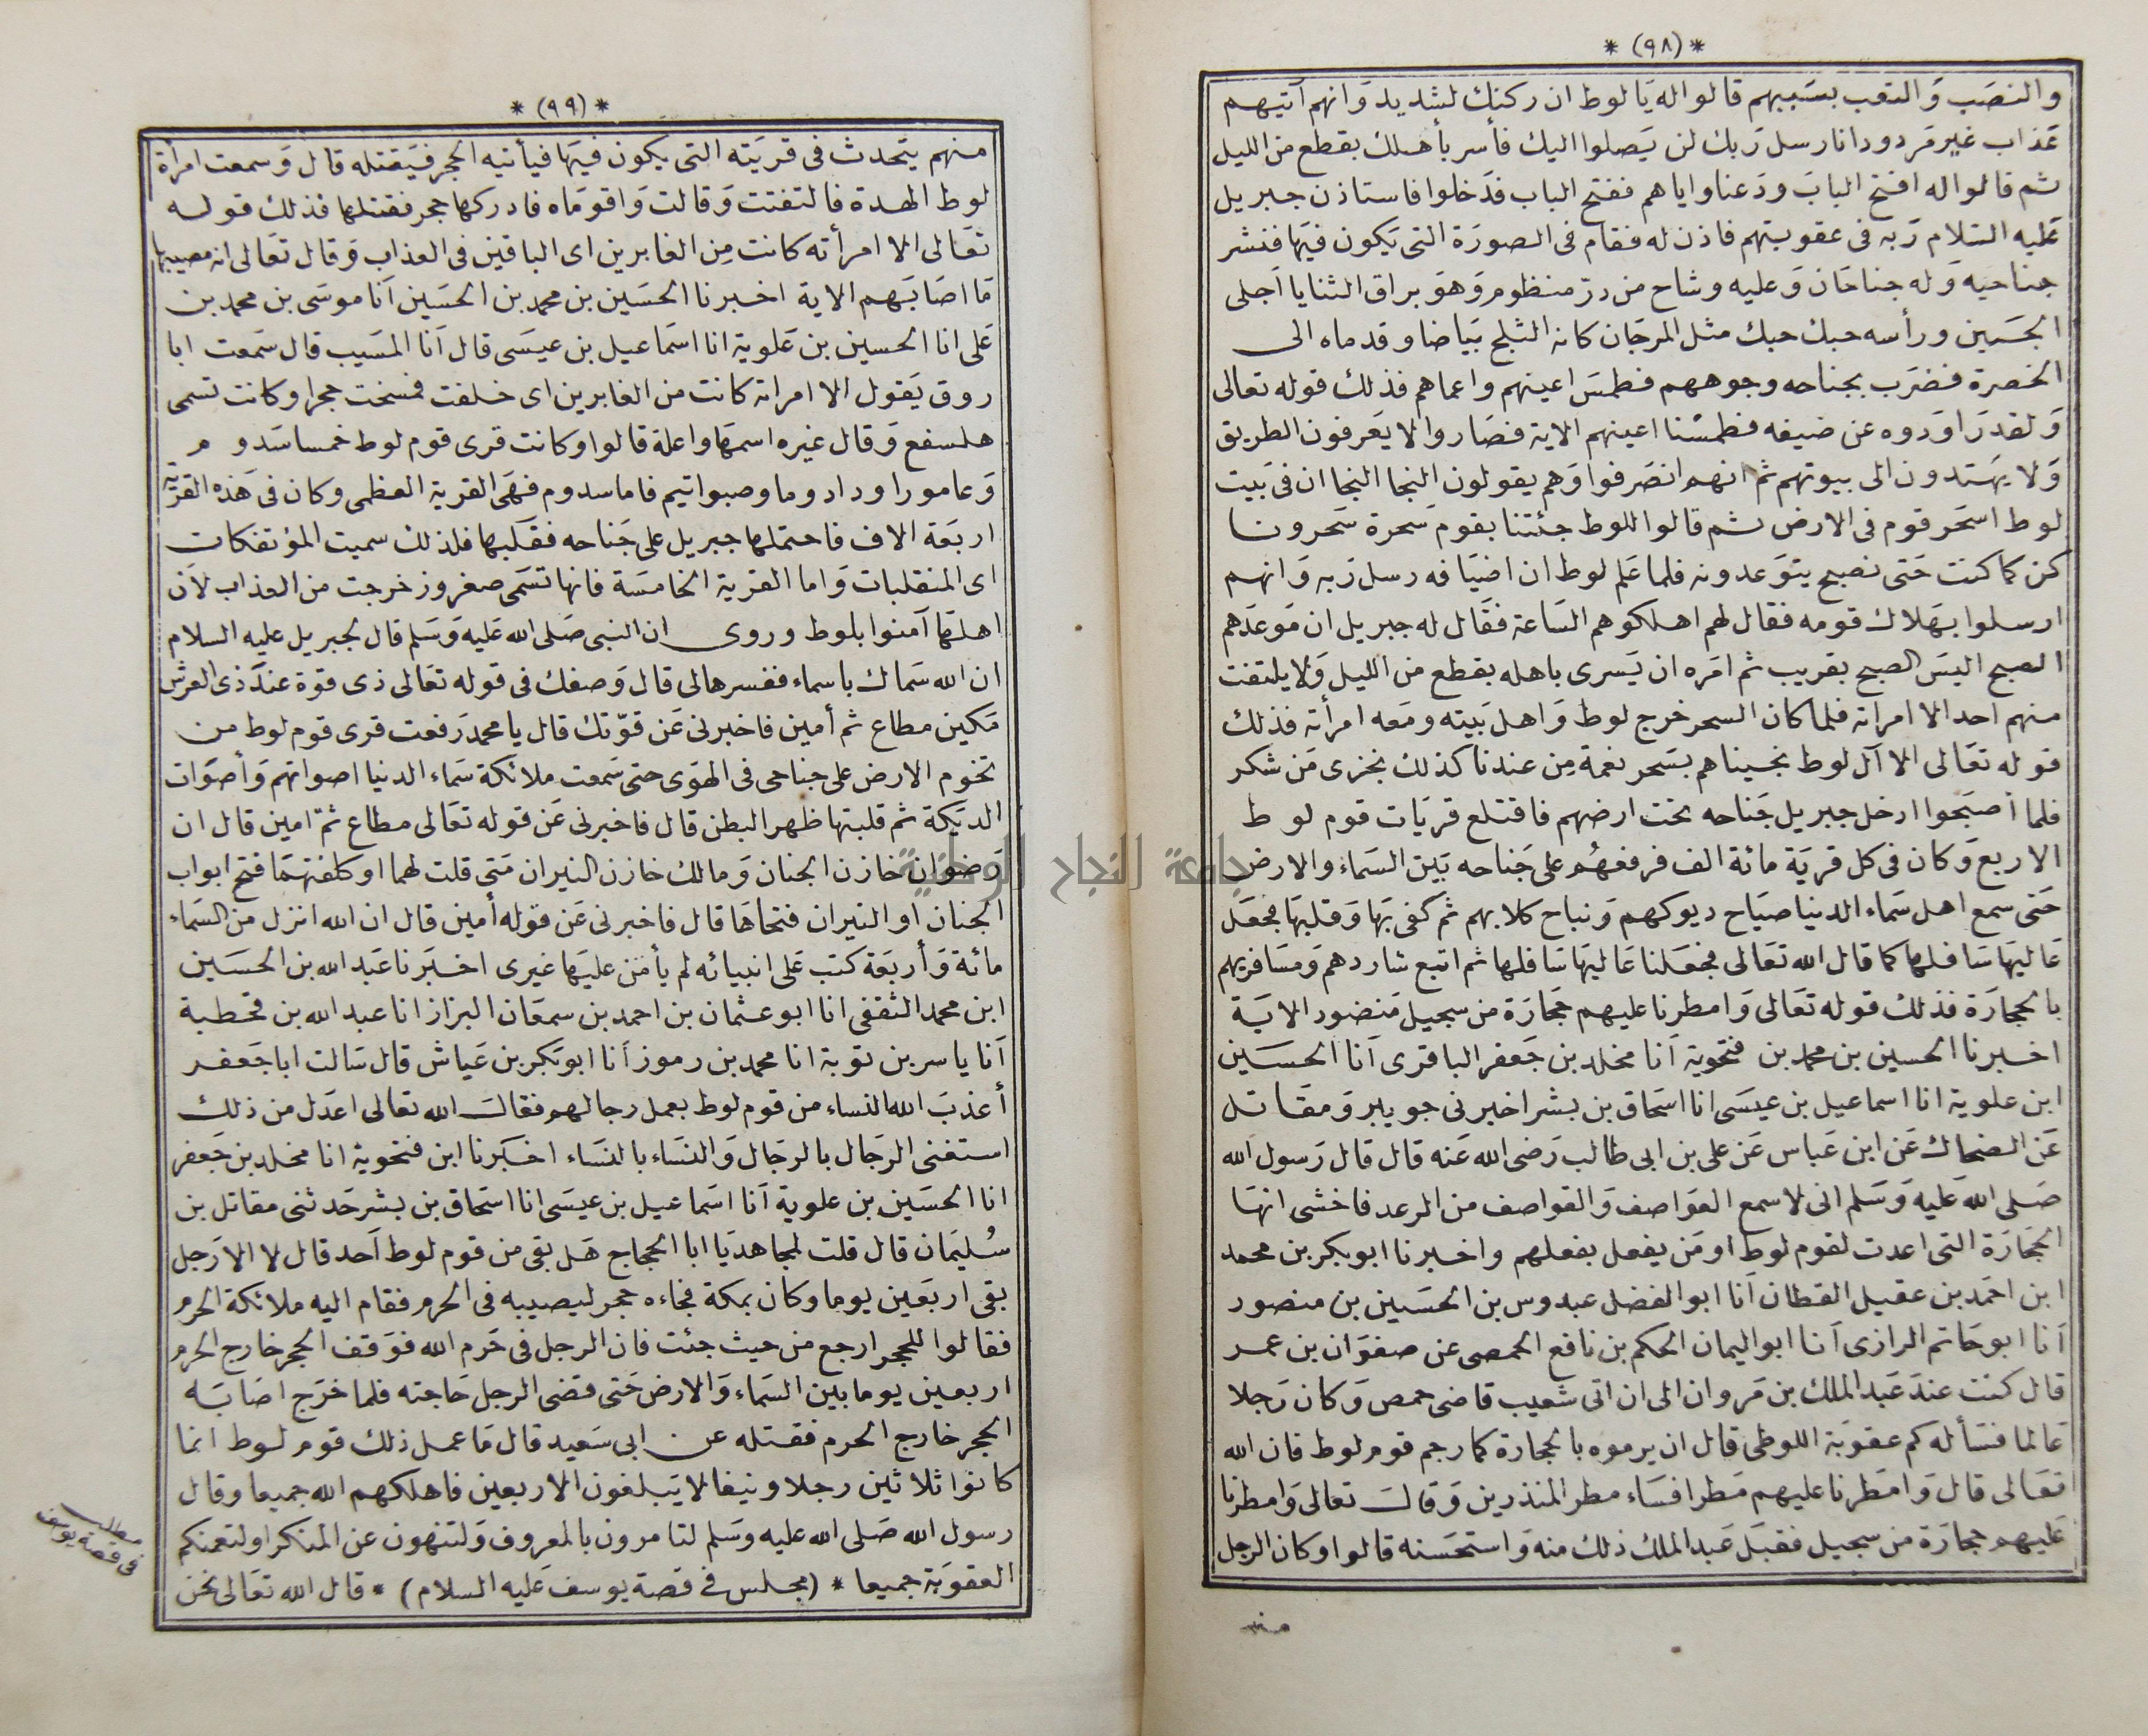 *(٩٨)*
والنصَب وَالتعب بسَببهم قالوا له يَا لوط ان ركنك لشديد وَانهم آتيهم
عَذاب غير مَردود انا رسل رَبك لن يَصلوا اليك فأسر بأهلك بقطع من الليل
ثم قالوا له افتح البابَ ودَعنا واياهم ففتح الباب فدَخلوا فاستاذن جبريل
عَليه السَلام رَبه فى عقوبتهم فاذن له فقام فى الصورَة التى يَكون فيَها فنشر
جناحيه وَله جناحَان وَعليه وشاح من درّ منظوم وَهوَ براق الثنايا اَجلى
الجَبين ورأسه حبك حبك مثل المرجَان كانه الثلج بَيَاضا وقدماه الى
الخضرة فضرَب بجناحه وجوههم فطمسَ اعينهم واعماهم فذلك قوله تعالى
وَلقد رَاوَدوه عن ضيفه فطمسْنا اعينهم الاية فصَاروا لا يعَرفون الطريق
وَلا يهَتدون الى بيوتهم ثم انهم انصَرفوا وَهم يقولون النجا النجا ان فى بَيت
لوط اسحَر قوم فى الارض ثم قالوا للوط جئتنا بقوم سَحرة سَحرونا
كن كما كنت حَتى نصبح يتوَعدونه فلما عَلم لوط ان اضيَافه رسل رَبه وَانهم
ارسلوا بهَلاك قومه فقال لهم اهلكوهم السَاعة فقَال له جبريل ان مَوعدَهم
الصبح اليسَ الصبح بقريب ثم امَره ان يَسرى باهله بقطع من الليل وَلا يلتفت
منهم احد الا امراته فلما كان السحر خرج لوط وَاهل بَيته ومَعه امرأته فذلك
قوله تعَالى الا آل لوط نجيناهم بسَحر نعمة مِن عندنا كذلك نجزى مَن شكر
فلما اصبَحوا ادخل جبريل جَناحه تحت ارضهم فاقتلع قريَات قوم لوط
الاربع وَكان فى كل قريَة مائة الف فرفعهُم على جَناحه بَين السَماء والارض
حَتى سمع اهل سَماء الدنيا صيَاح ديوكهم وَنباح كلابهم ثم كفى بَها وَقلبهَا فجعَل
عَاليهَا سَافلها كما قال الله تعَالى فجعَلنا عَاليهَا سَافلها ثم اتبع شاردهم وَمسَافريهم
بالحجارَة فذلك قوله تعَالى وَامطرنا عليهم حجَارَة من سجيل مَنضود الايَة
اخبرنا الحسين بن محمد بن فتحوية اَنا مخلد بن جَعفر الباقرى اَنا الحسَين
ابن علوية انا اسماعيل بن عيسَى انا اسحَاق بن بشر اخبرنى جويبر وَمقاتل
عَن الضحاك عَن ابن عَباس عَن على بن ابى طالب رَضى الله عَنه قال قال رَسول الله
صَلى الله عَليه وَسَلم انى لاسمع العوَاصف وَالقواصف من الرعد فاخشى انهَا
الحجَارَة التى اعدت لقوم لوط او مَن يفعل بفعلهم واخبرنا ابو بكر بن محمد
ابن احمَد بن عقيل القطان اَنا ابو الفضل عبدوس بن الحسَين بن منصور
اَنا ابو حَاتم الرازى اَنا ابو اليمان الحكم بن نافع الحمصى عن صفوَان بن عمر
قال كنت عندَ عَبد الملك بن مَروان الى ان اتى شعيب قاضى حمص وَكان رَجلا
عَالما فسَأله كم عقوبَة اللوطى قال ان يرموه بالحجارة كما رجم قوم لوط فان الله
تعَالى قال وَامطَرنا عليهم مَطرا فسَاء مطر المنذرين وَقالَ تعالى وَامطرنا
عَليهم حجارَة من سجيل فقبَل عَبد الملك ذلك منه وَاستحَسنه قالوا وكان الرجل
*(٩٩)*
منهم يتحدث فى قريَته التى يكون فيهَا فيأتيه الحجر فيَقتله قال وَسمعت امرأة
لوط الهدة فالتفتت وَقالت وَاقومَاه فادركها حجر فقتلها فذلك قوله
تعَالى الا امرأته كانت مِن الغابرين اى الباقين فى العذاب وَقال تعَالى انه مصيبها
مَا اصَابَهم الاية اخبرنا الحسَين بن محمد بن الحسَين اَنا موسَى بن محمد بن
عَلى انا الحسين بن عَلوية انا اسمَاعيل بن عيسَى قال اَنا المسَيب قال سَمعت ابا
روق يَقول الا امراته كانت من الغابرين اى خلفت فمسخت حجرا وكانت تسمى
هلسفع وَقال غيره اسمهَا واعلة قالوا وكانت قرى قوم لوط خمسا سَدوم
وَعامورا وداد وما وصبواتيم فاما سدوم فهَى القرية العظمى وكان فى هَذه القريَة
اربعَة الاف فاحتملها جبريل على جَناحه فقَلبها فلذلك سميت المؤتفكات
اى المنقلبات وَاما القرية الخامسَة فانها تسَمى صغر وزخرجت من العذاب لاَن
اهلهَا آمنوا بلوط وروى ان النبى صَلى الله عَليه وَسَلم قال لجبريل عليه السلام
ان الله سَماك باسماء ففسرها لى قال وَصفك فى قوله تعَالى ذى قوة عندَ ذى العرش
مَكين مطاع ثم أمين فاخبرنى عَن قوّتك قال يا محمد رَفعت قرى قوم لوط من
تخوم الارض على جناحى فى الهوَى حتى سَمعت ملائكة سَماء الدنيا اصواتهم وَأصوَات
الديَكة ثم قلبتها ظهر البطن قال فاخبرنى عَن قوله تعَالى مطاع ثمّ امين قال ان
رَضوَان خازن الجنان وَمالك خازن النيران مَتى قلت لهما او كلفتهمَا فتح ابواب
الجنان او النيران فتحاهَا قال فاخبرنى عَن قوله أمين قال ان الله انزل من السَماء
مائة وَأربَعَة كتب عَلى انبيائه لم يأمَن عليَها غيرى اخبَرنا عَبد الله بن الحسَين
ابن محمد الثقفى انا ابو عثمان بن احمد بن سمعَان البزاز انا عبد الله بن قحطبة
اَنا ياسر بن توبة انا محمد بن رموز اَنا ابو بَكر بن عَياش قال سَالت ابا جَعفر
أعذبَ الله النساء من قوم لوط بعمل رجالهم فقالَ الله تعالى اعدَل من ذلك
استغنى الرجَال بالرجَال وَالنسَاء بالنسَاء اخبَرنا ابن فتحوية انا مخلد بن جَعفر
انا الحسَين بن علوية اَنا اسمَاعيل بن عيسَى انا اسحَاق بن بشر حَدثنى مقاتل بن
سُليمَان قال قلت لمجاهد يَا ابا الحجاج هَل بقى من قوم لوط اَحد قال لا الا رَجل
بقى اربعَين يوما وكان بمكة فجاءه حجر ليصيبه فى الحرم فقام اليه ملائكة الحرم
فقالوا للحجر ارجع من حيث جئت فان الرجل فى حَرم الله فوَقف الحجر خارج الحرم
اربعين يوما بين السَماء وَالارض حَتى قضى الرجل حَاجته فلما خرَج اصَابَه
الحجر خارج الحرم فقتله عن ابى سَعيد قال مَا عمل ذلك قوم لوط انما
كانوا ثلاثين رجلا ونيفا لا يَبلغون الاربعين فاهلكهم الله جميعا وقال
رسول الله صَلى الله عليه وسَلم لتامرون بالمعروف وَلتنهون عن المنكر او لتعمنكم
العقوبَة جميعا * (مجلس فى قصة يوسف عَليه السلام) * قال الله تعَالى نحن
مطلب
فى قصة يوسف
منهم
جامعة النجاح الوطنية